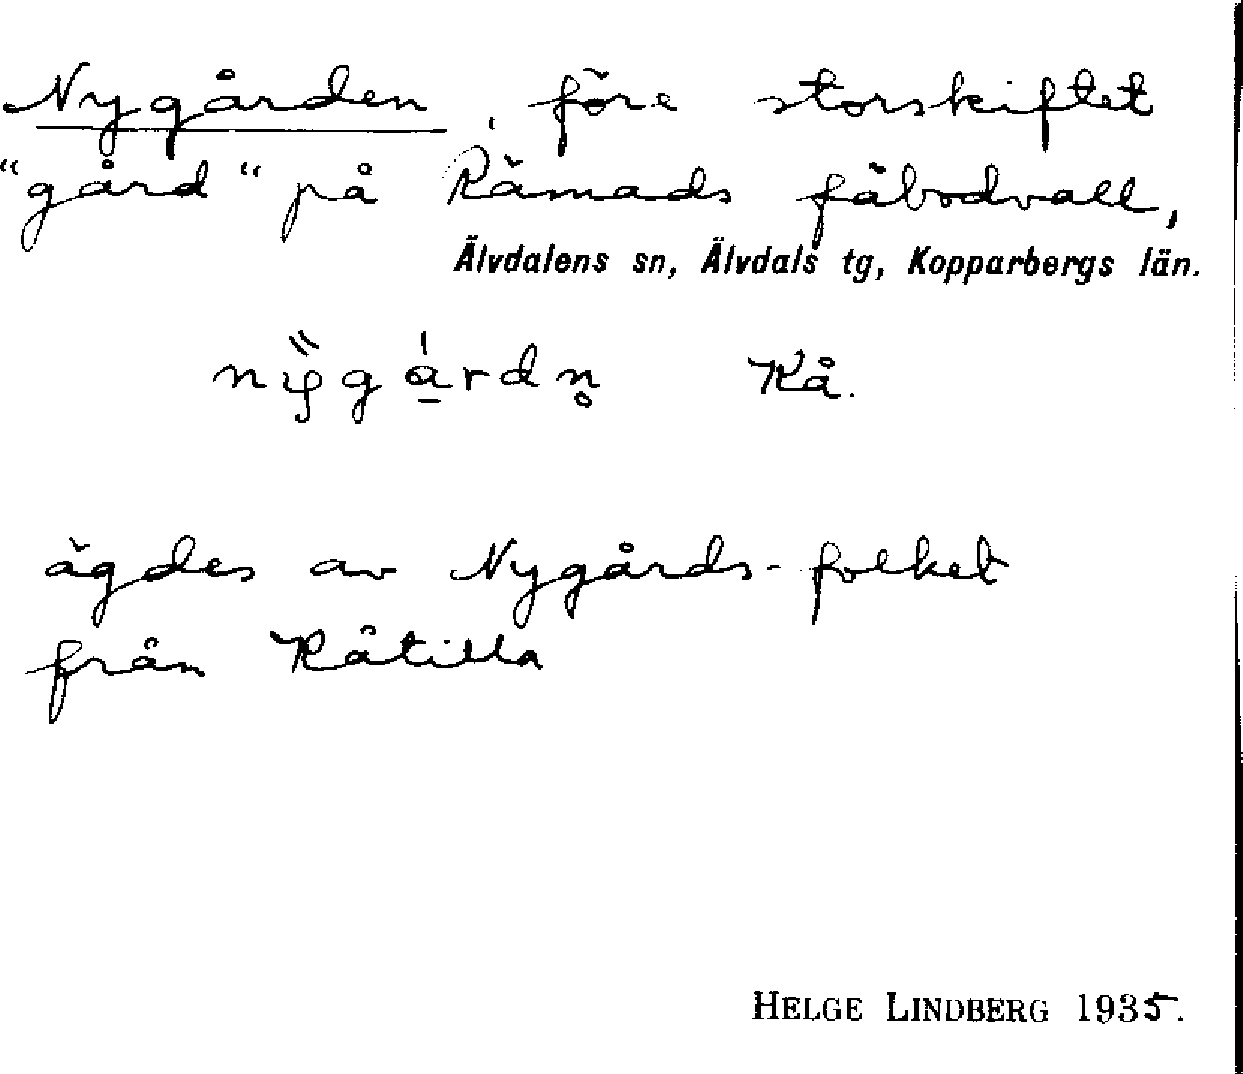 Nygården, före storskiftet
"gård" på Rämads fäbodvall,
Älvdalens sn, Älvdals tg, Kopparbergs län.
Rå.
ägdes av Nygårds-folket
från Råtilla
HELGE LINDBERG 1935.